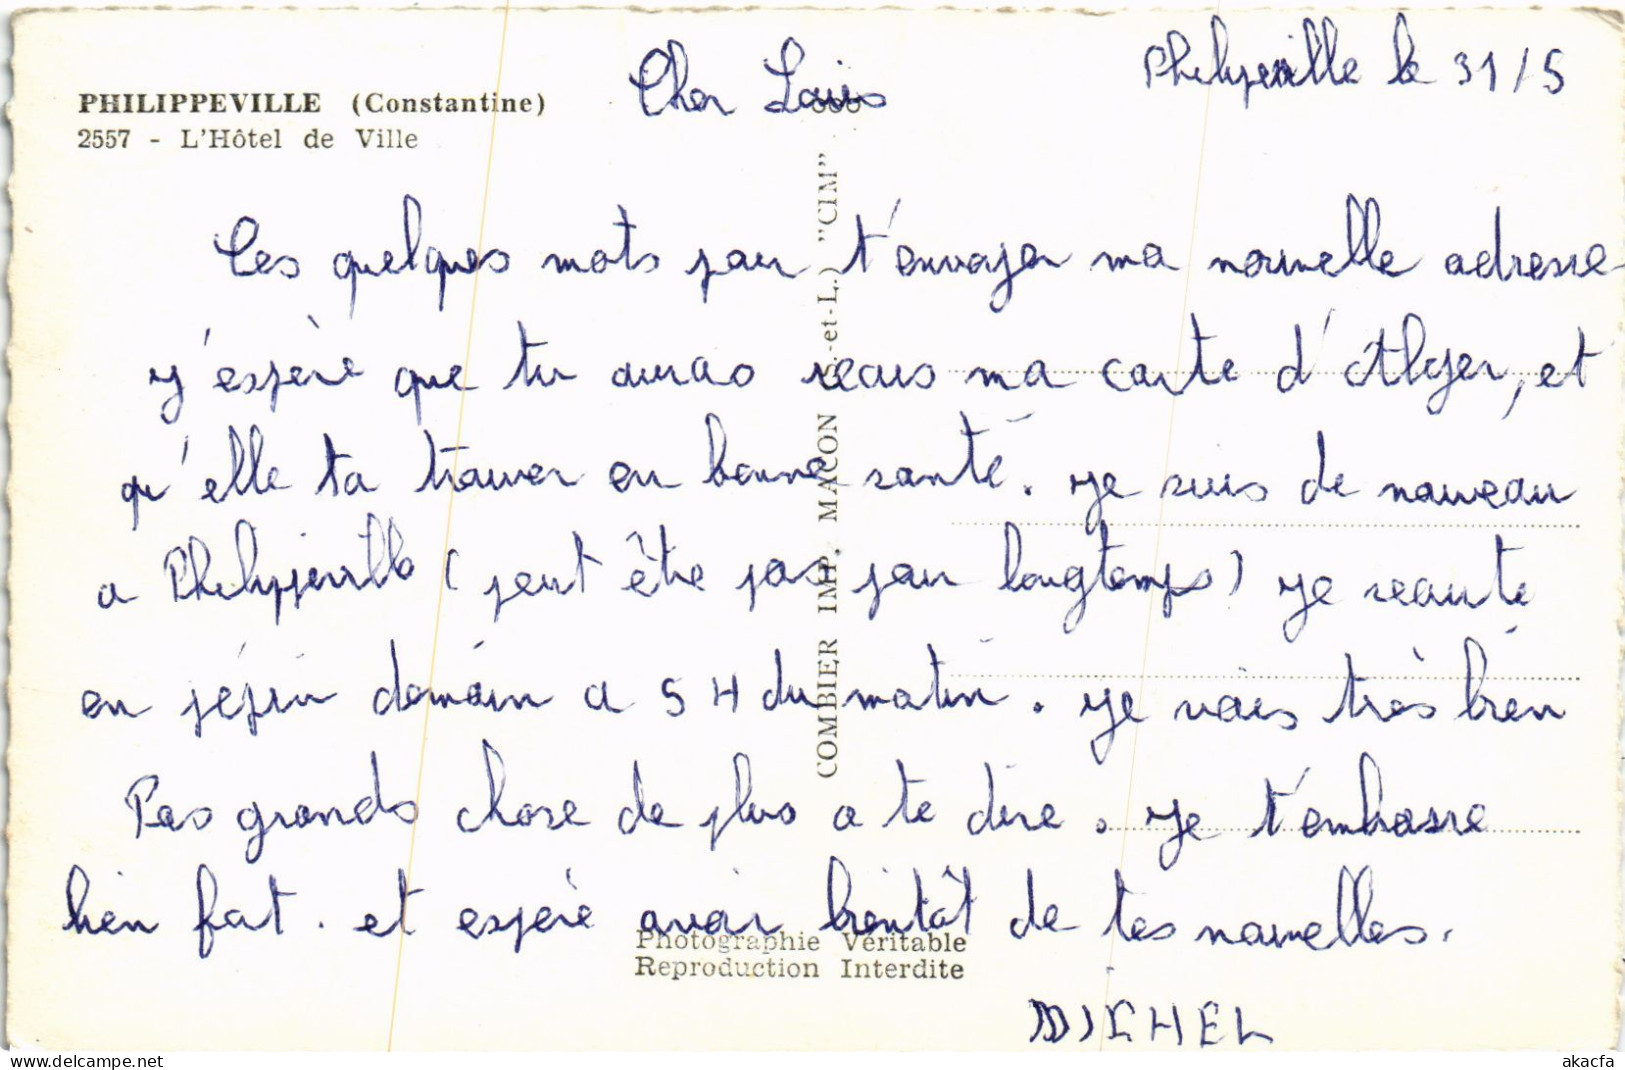 Philippeville le 31/5
PHILIPPEVILLE (Constantine)
2557 - L'Hôtel de Ville
Cher Louis
Ces quelques mots pour t'envoyer ma nouvelle adresse
j'espère que tu auras recus ma carte d'Alger, et
qu'elle ta trouver en bonne santé. Je suis de nouveau
a Philippeville (peut être pas pour longtemps) Je
en demain a 5 H du matin. Je vais très bien
Pas grands chose de plus a te dire. Je t'embrasse
bien fort. et espère avoir bientôt de tes nouvelles.
MICHEL
COMBIER IMP. MACON S.-et-L.) "CIM"
Photographie Véritable
Reproduction Interdite
https://www.delcampe.net
akacfa